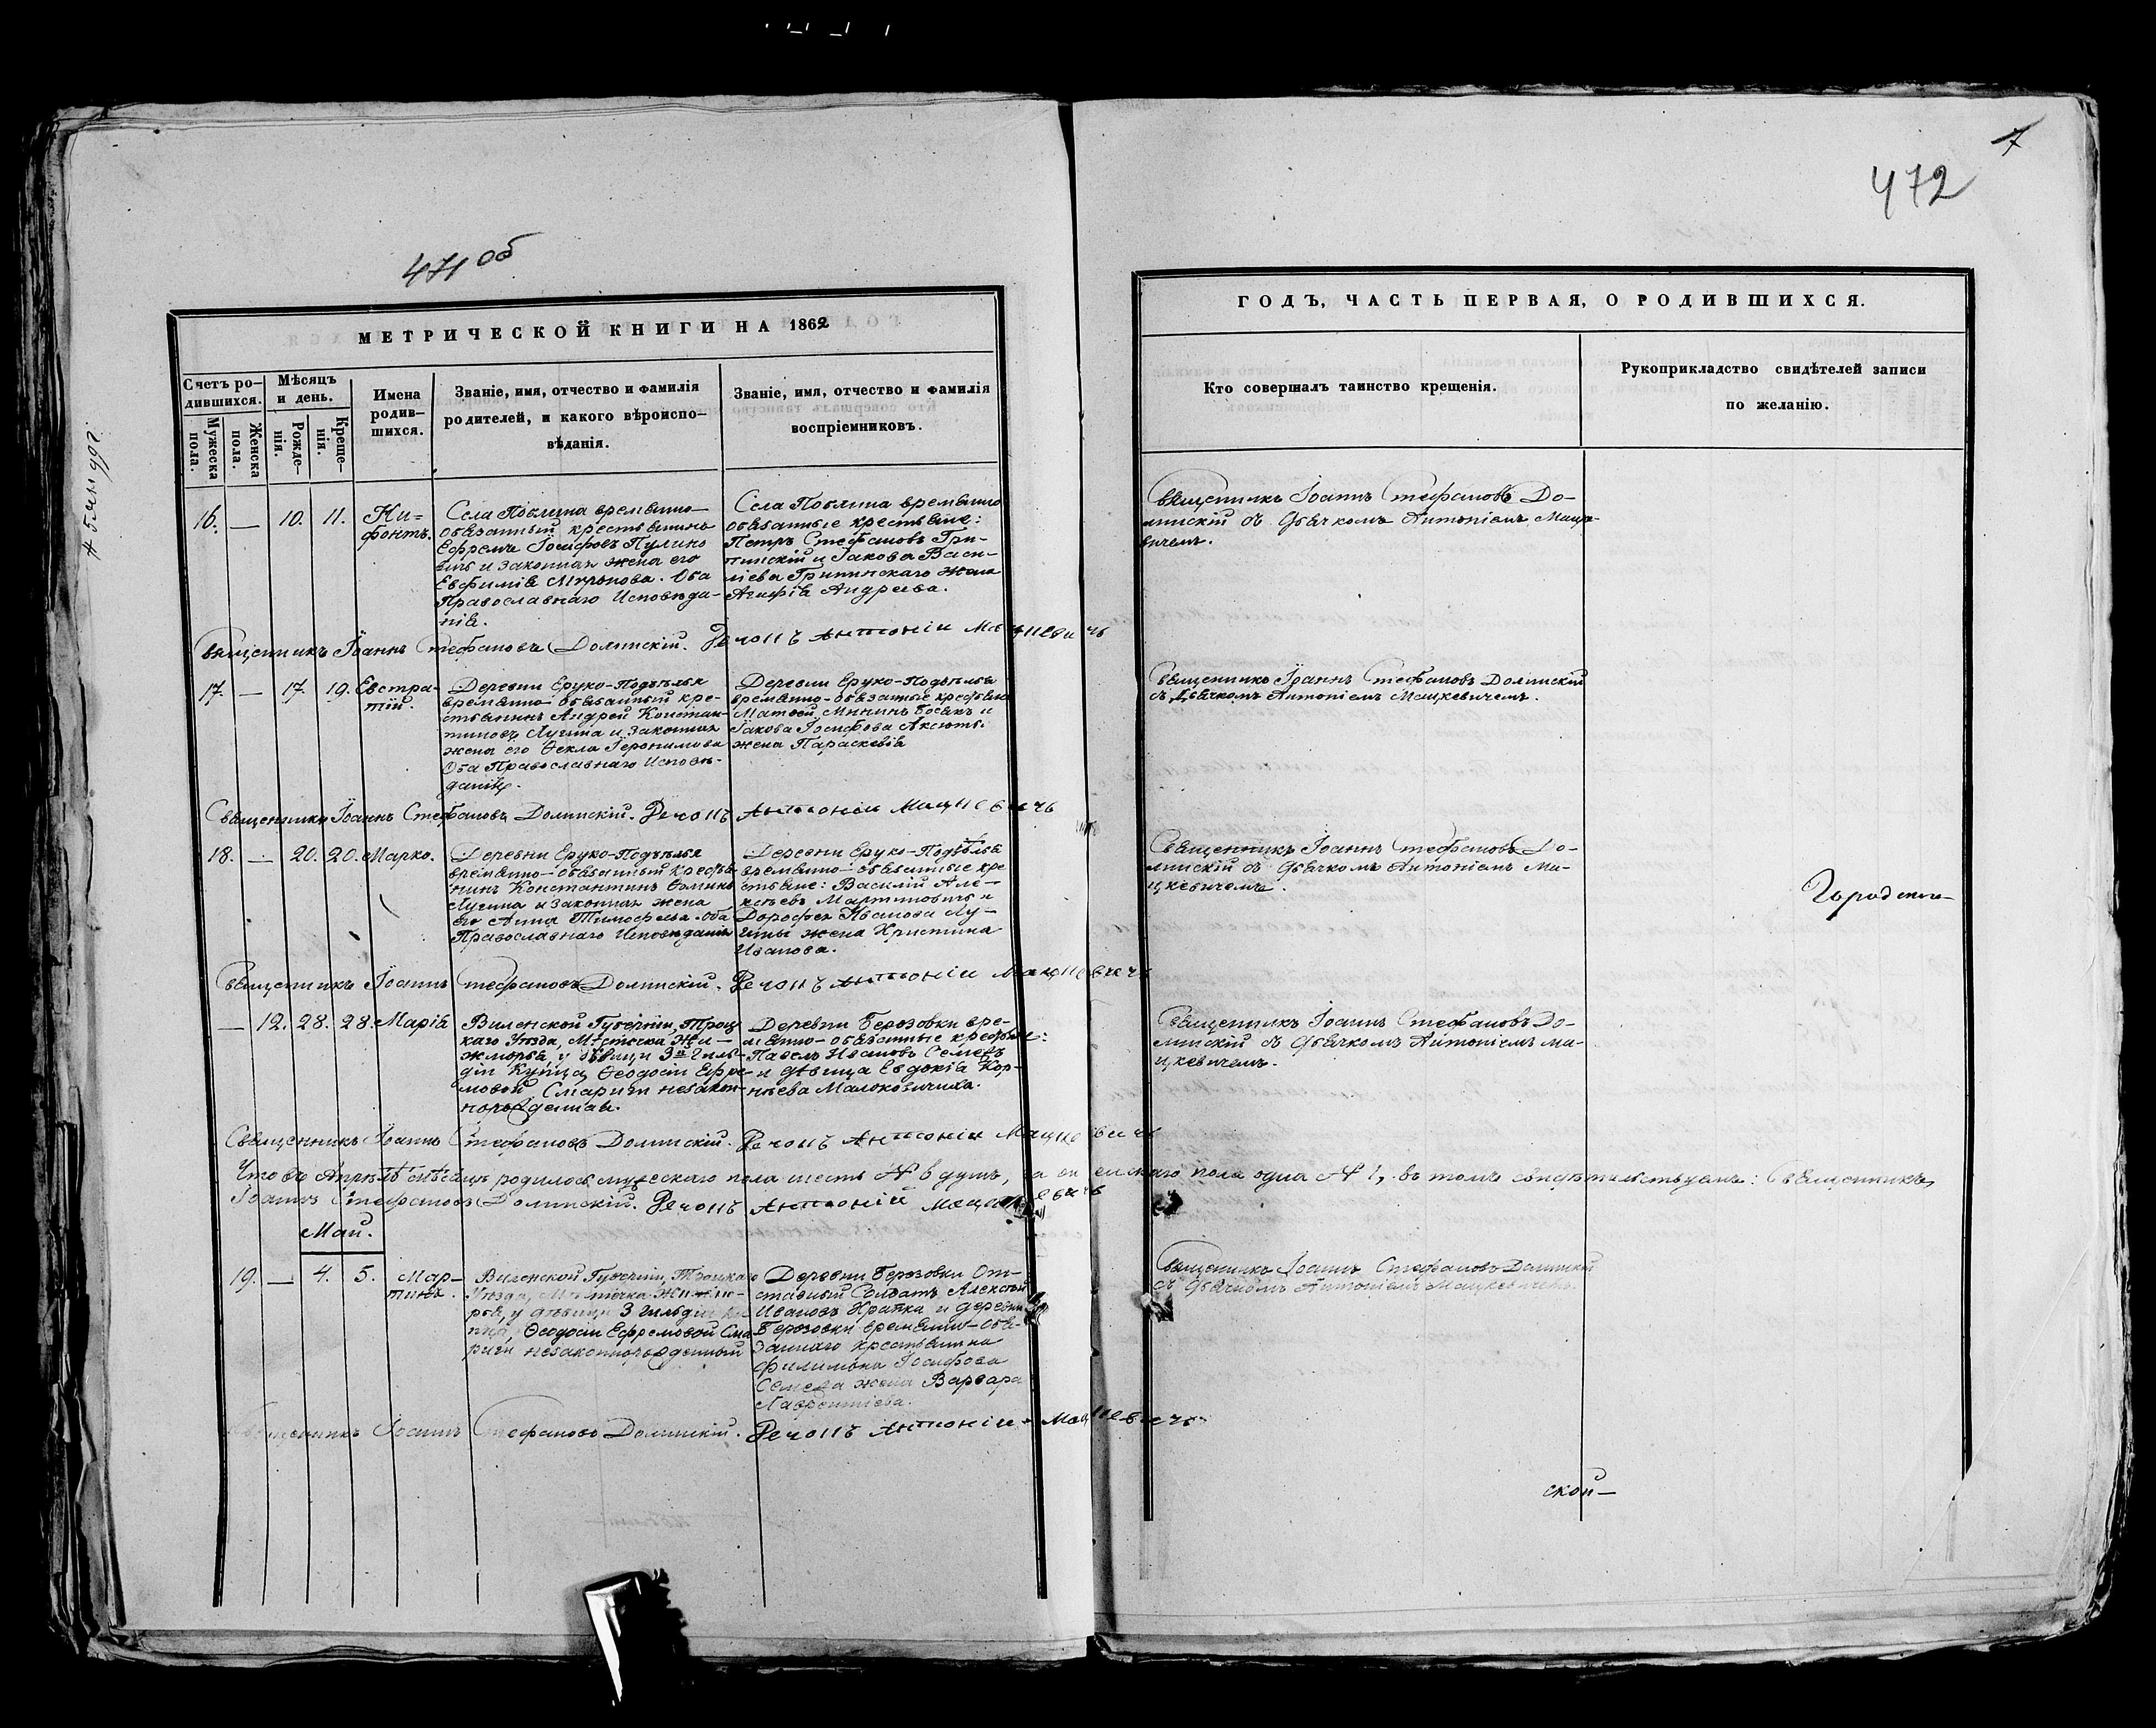 472
7
471 об
МЕТРИЧЕСКОЙ КНИГИ НА 1862
Счетъ ро-
дившихся.
Мѣсяцъ
и день.
Мужеска
пола.
Женска
пола.
Рожде-
нія.
Креще-
нія.
Имена
родив-
шихся.
Званіе, имя, отчество и фамилія
родителей, и какого вѣроиспо-
вѣданія.
Званіе, имя, отчество и фамилія
воспріемниковъ.
16. — 10. 11.
Ни=
фонтъ.
Села временно-
обязанный крестьянинъ
Ефремъ Іосифовъ
и законная жена его
Евфимія Миронова. Оба
Православнаго Исповѣда-
нія.
Села временно
обязанные крестьяне:
Петръ Стефановъ Гри-
и Іакова Васи-
ліева жена
Агафія Андреева.
Священникъ Іоаннъ Стефановъ Долинскій. Антоній Мацкевичъ
17. — 17. 19.
Евстра-
тій.
Деревни Еруко-Подѣлья
временно-обязанный кре-
стьянинъ Андрей Констан-
тиновъ Лугина и законная
жена его Ѳекла Іеронимова
Оба Православнаго Исповѣ-
данія.
Деревни Еруко-Подѣлья
временно-обязанные
Матѳей Мининъ и
Іакова Іосифова
жена Параскевія
Священникъ Іоаннъ Стефановъ Долинскій. Антоній Мацкевичъ
18. — 20. 20. Марко.
Деревни Еруко-Подѣлья
временно-обязанный
Константинъ Ѳоминъ
Лугина и законная жена
его Анна Тимофеева. Оба
Православнаго Исповѣданія
Деревни Еруко-Подѣлья
временно-обязанные кре
стьяне: Василій Але-
ксѣевъ Мартиновичъ и
Дорофея Иванова Лу-
гины жена Христина
Иванова.
Священникъ Іоаннъ Стефановъ Долинскій. Антоній Мацкевичъ
— 12. 28. 28. Марія
Виленской Губерніи, Троц
каго Уѣзда, Мѣстечка Жи-
жморъ, у дѣвицы 3й гиль-
діи Купца, Ѳеодосіи Ефре-
мовой незакон-
норожденная.
Деревни Березовки вре-
менно-обязанные
Павелъ Ивановъ
и дѣвица Евдокія Кор-
нѣева
Священникъ Іоаннъ Стефановъ Долинскій. Антоній Мацкевичъ
Что въ Апрѣлѣ мѣсяцѣ родилось мужескаго пола шесть № 6 душъ, пола одна № 1, въ томъ свидѣтельствуемъ: Священникъ
Іоаннъ Стефановъ Долинскій. Антоній Мацкевичъ
Май.
19. — 4. 5.
Мар-
тинъ.
Виленской Губерніи, Троцкаго
Уѣзда, Мѣстечка
у дѣвицы 3 гильдіи
Ѳеодосіи Ефремовой
незаконнорожденный
Деревни Березовки От-
ставный Солдатъ Алексѣй
Ивановъ и деревни
Березовки временно-обя-
заннаго крестьянина
Филимона Іосифова
жена Варвара
Лаврентіева.
Священникъ Іоаннъ Стефановъ Долинскій. Антоній Мацкевичъ
ГОДЪ, ЧАСТЬ ПЕРВАЯ, О РОДИВШИХСЯ.
Кто совершалъ таинство крещенія.
Рукоприкладство свидѣтелей записи
по желанію.
Священникъ Іоаннъ Стефановъ До-
линскій съ Дьячкомъ Антоніемъ Мацке-
вичемъ.
Священникъ Іоаннъ Стефановъ Долинскій
съ Дьячкомъ Антоніемъ Мацкевичемъ.
Священникъ Іоаннъ Стефановъ До-
линскій съ Дьячкомъ Антоніемъ Ма-
цкевичемъ.
Священникъ Іоаннъ Стефановъ До-
линскій съ Дьячкомъ Антоніемъ Ма-
цкевичемъ.
Священникъ Іоаннъ Стефановъ Долинскій
съ Дьячкомъ Антоніемъ Мацкевичемъ.
ской-